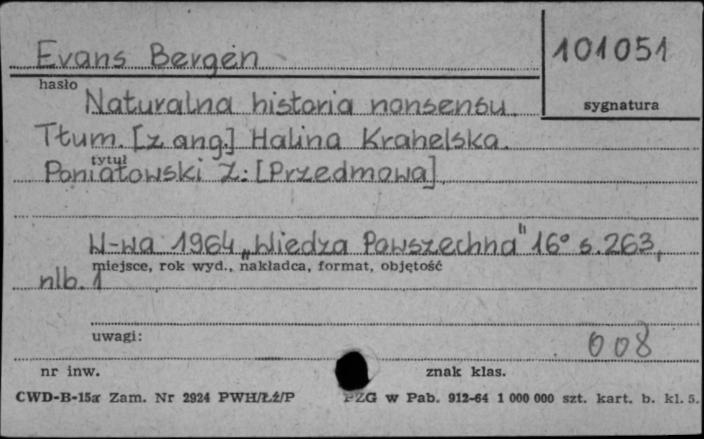 Evans Bergen
101051
hasło
sygnatura
Naturalna historia nonsensu.
Tłum. [z ang.] Halina Krahelska.
tytuł
Poniatowski Z.: [Przedmowa]
W-wa 1964 „Wiedza Powszechna" 16° s. 263,
miejsce, rok wyd., nakładca, format, objętość
nlb. 1
uwagi:
008
nr inw.
znak klas.
CWD-B-15a Zam. Nr 2924 PWH/Łź/P PZG w Pab. 912-64 1 000 000 szt. kart. b. kl. 5.